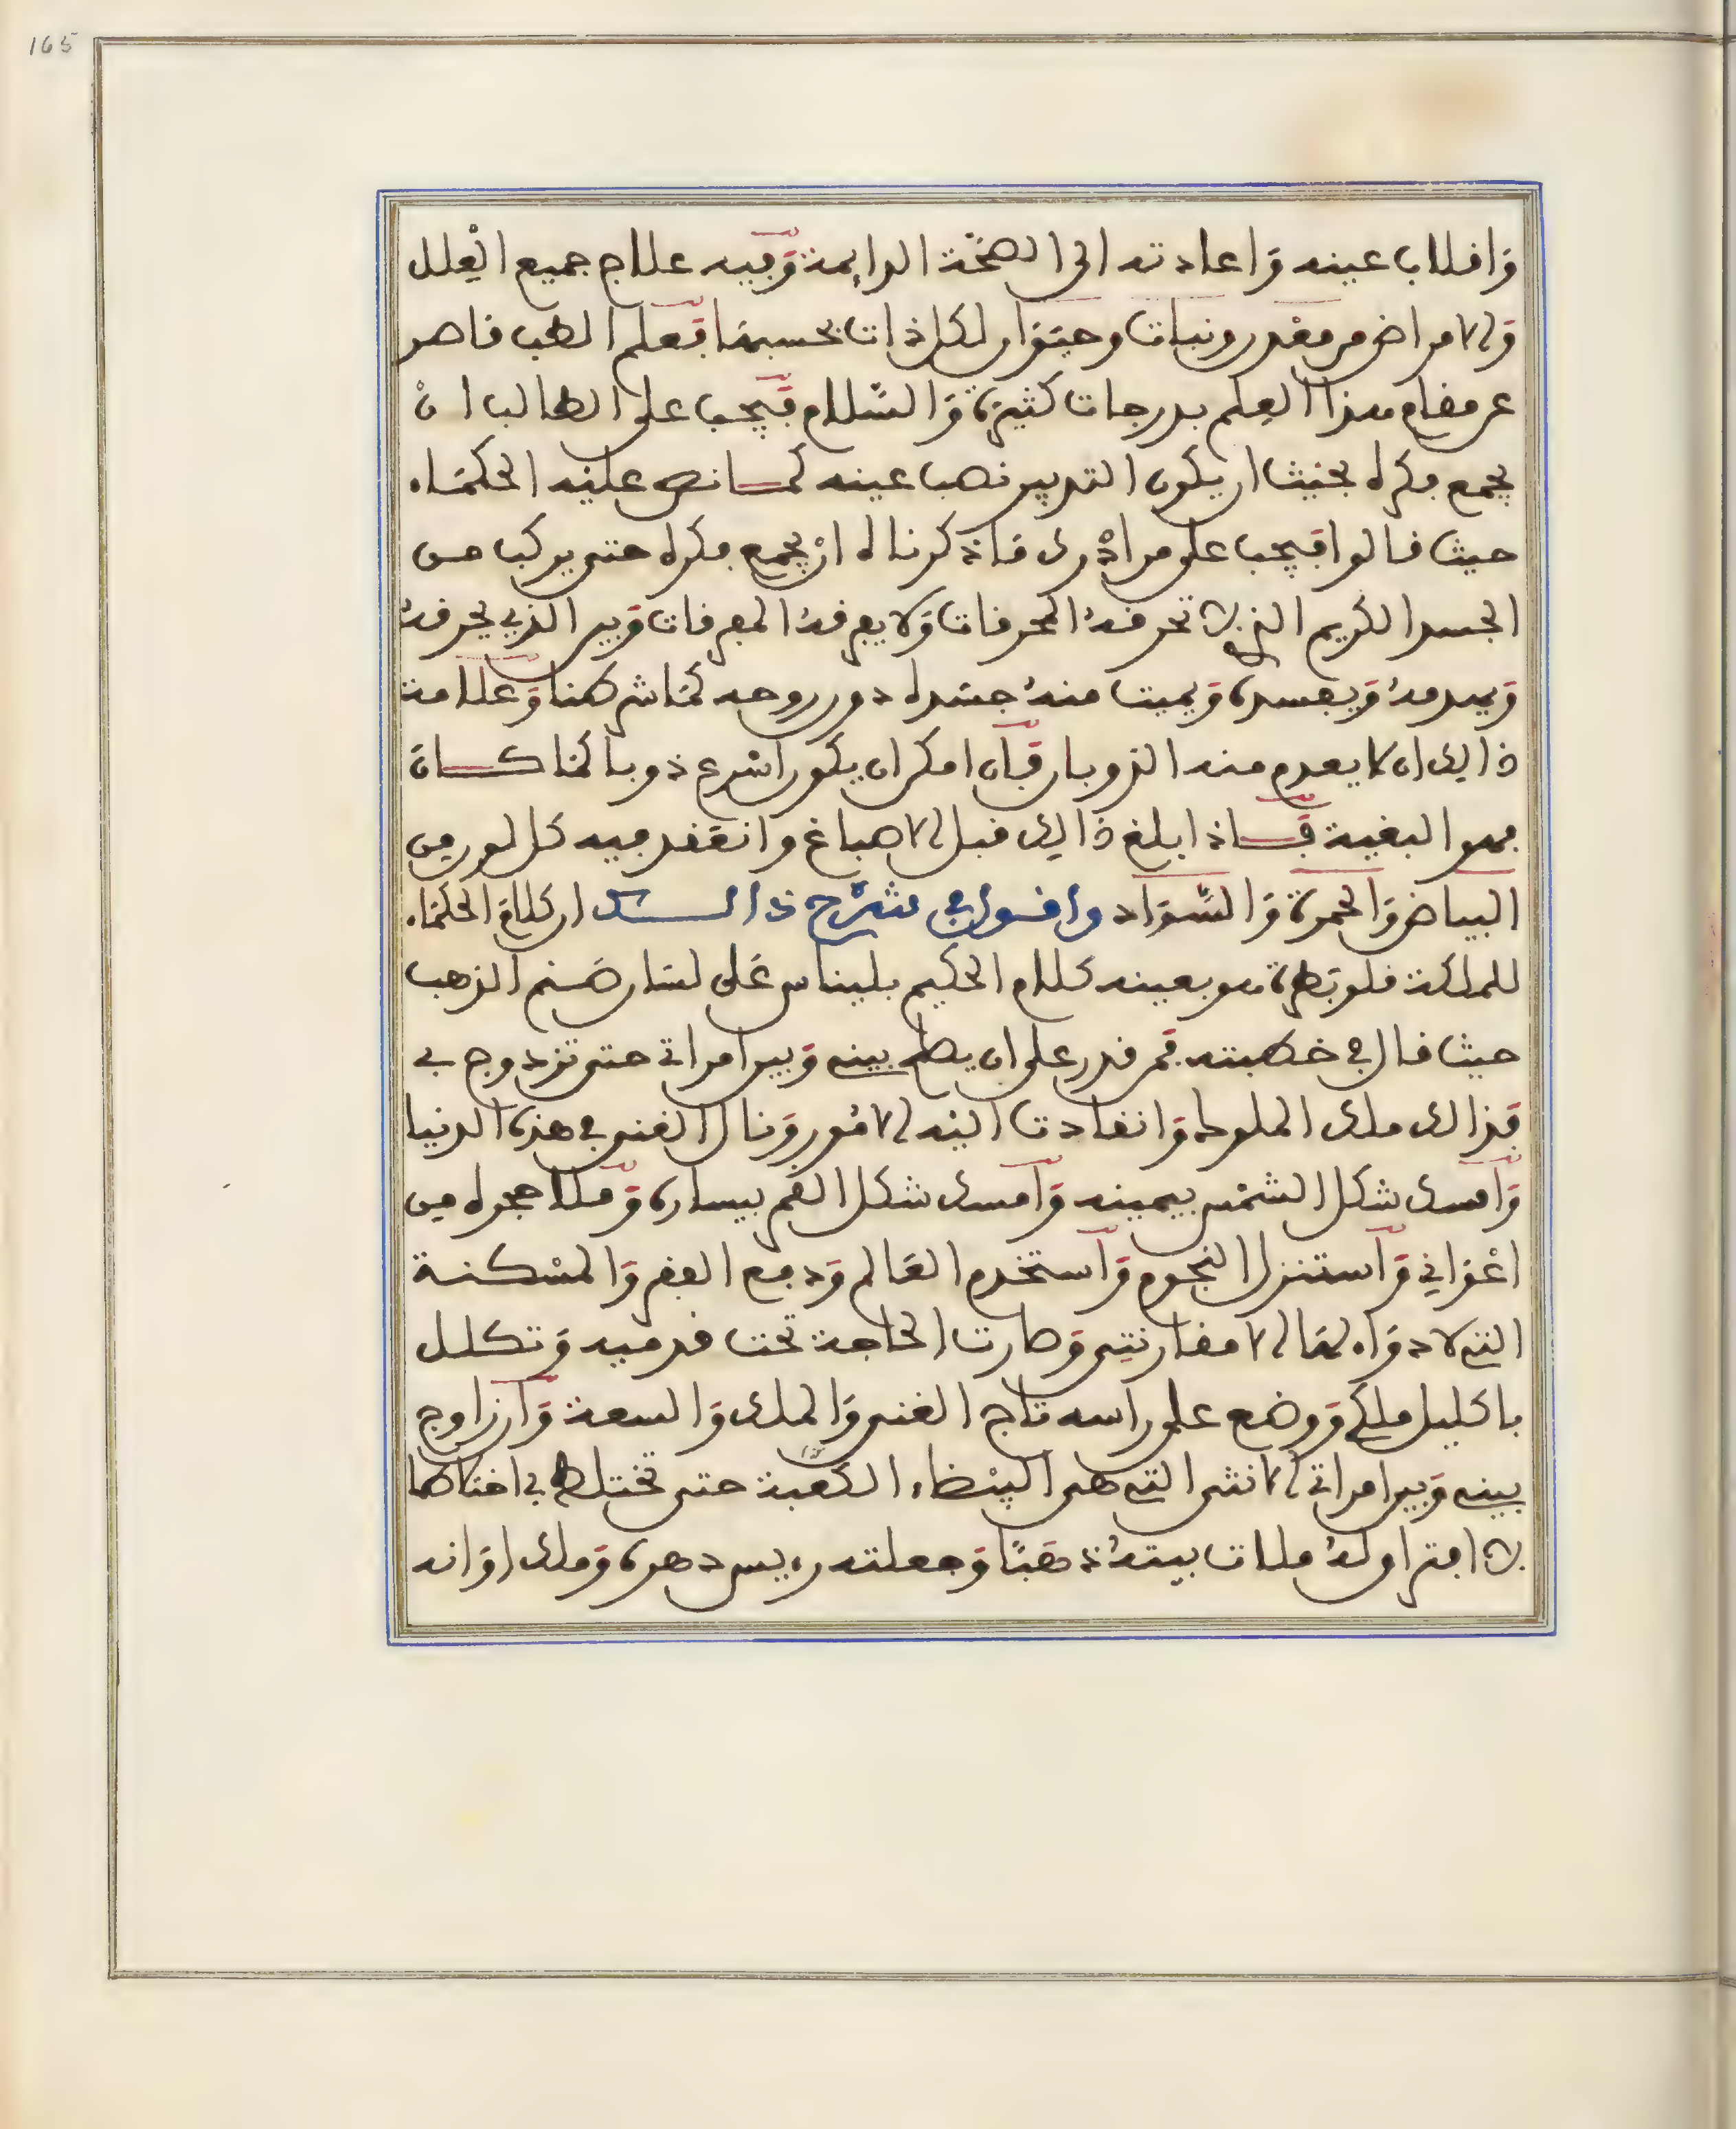 165
وَاقلاب عينه وَاعادته الى الصحّة الدايمة وَفيه علاج جميع العِلل
وَالامراض من معْدن ونبات وحيَوان لكل ذات بحسبهَا فعلم الطب قاصر
عن مقام هذا العِلم بدرجات كثيرة وَالسّلام فيَجب على الطالب انْ
يجمع فكره بحيْث ان يكون التدبير نصب عينه كمَا نص عليْه الحكمَاء
حيث قالوا فيَجب على من ادْرك مَا ذكرنا له انْ يجمع فكره حتى يركب من
الجسد الكريم الذي لا تحرقهُ المحرقات وَلا يغرقهُ المغرقات وَبين الذي يحرقهُ
وَيهدمهُ وَيفسده وَيميت منهُ جسَده دون روحه كمَا شرطنا وَعلامة
ذالك ان لا يعدم منه الذوبان فَان امكن ان يكون اسْرع ذوبا ممَا كان
فهو البغية فَاذا بلغ ذالك قبل الاصباغ وانعَقد فيه كل لون مِن
البياض وَالحمرة وَالسّوَاد واقول في شرْح ذالك ان كلام الحكمَاء
للملكة قلوبَطرة هو بعينه كلام الحكيم بليناس عَلى لسَان صَنم الذهب
حيث قال في خطبته فمن قدر على ان يصلح بينى وَبين امراتي حتى تزدوج بى
فَذالك ملك الملوك وَانقادت اليْه الامُور وَنال الغنى في هذه الدنيا
وَامسك شكل الشمْس بيمينه وَامسك شكل القمر بيساره وَملا حجره مِن
اعْوَاني وَاستنزل النجوم وَاستخدم العَالم وَدفع الفقر وَالمسْكنة
التي لا دوَاء لهَا الا مقارنتِى وَصارت الحاجة تحت قدميه وَتكلل
باكليل ملكى وَوضع على راسه تاج الغنى وَالملك وَالسعة وَان زاوج
بينى وَبين امراتي الانثى التي هى البيْضاء النقية حتى تختلط بي اختلاطا
لا افتراق لهُ ملات بيتهُ ذهَبًا وَجعلته رءيس دهره وَملك اوَانه